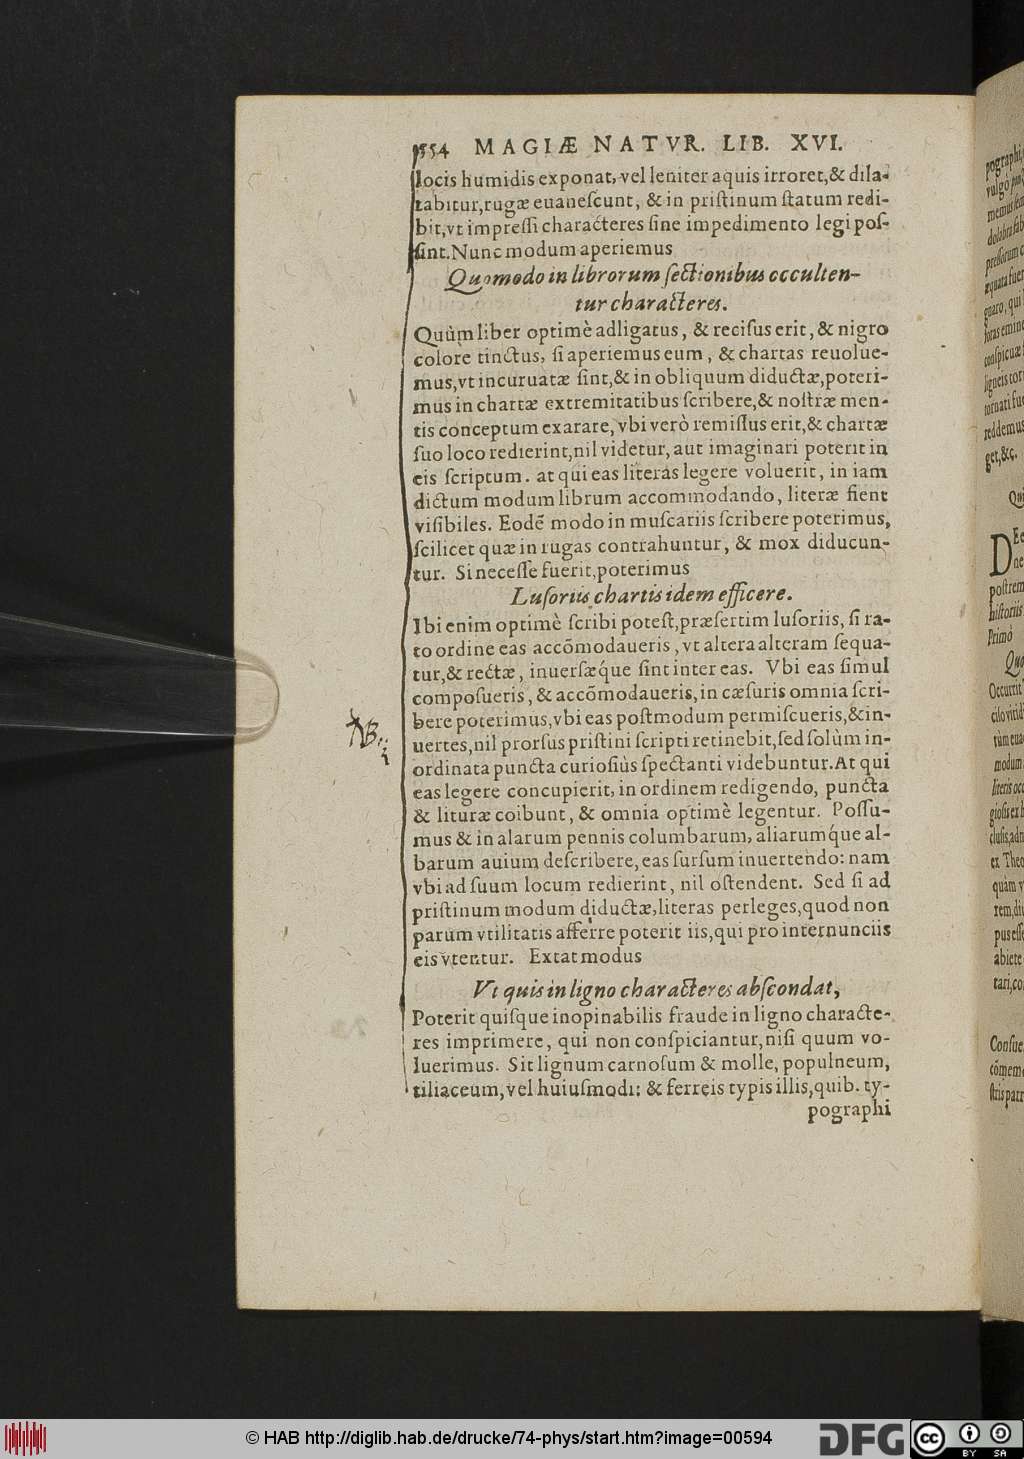 554 MAGIÆ NATVR. LIB. XVI.
locis humidis exponat, vel leniter aquis irroret, & dila-
tabitur, rugæ euaneſcunt, & in priſtinum ſtatum redi-
bit, vt impreſſi characteres ſine impedimento legi poſ-
ſint. Nunc modum aperiemus
Quomodo in librorum ſectionibus occulten-
tur characteres.
Quùm liber optimè adligatus, & reciſus erit, & nigro
colore tinctus, ſi aperiemus eum, & chartas reuolue-
mus, vt incuruatæ ſint, & in obliquum diductæ, poteri-
mus in chartæ extremitatibus ſcribere, & noſtræ men-
tis conceptum exarare, vbi verò remiſſus erit, & chartæ
ſuo loco redierint, nil videtur, aut imaginari poterit in
eis ſcriptum. at qui eas literas legere voluerit, in iam
dictum modum librum accommodando, literæ fient
viſibiles. Eodẽ modo in muſcariis ſcribere poterimus,
ſcilicet quæ in rugas contrahuntur, & mox diducun-
tur. Si neceſſe fuerit, poterimus
Luſoriis chartis idem efficere.
Ibi enim optimè ſcribi poteſt, præſertim luſoriis, ſi ra-
to ordine eas accõmodaueris, vt altera alteram ſequa-
tur, & rectæ, inuerſæq́ue ſint inter eas. Vbi eas ſimul
compoſueris, & accõmodaueris, in cæſuris omnia ſcri-
bere poterimus, vbi eas poſtmodum permiſcueris, & in-
uertes, nil prorſus priſtini ſcripti retinebit, ſed ſolùm in-
ordinata puncta curioſiùs ſpectanti videbuntur. At qui
eas legere concupierit, in ordinem redigendo, puncta
& lituræ coibunt, & omnia optimè legentur. Poſſu-
mus & in alarum pennis columbarum, aliarumq́ue al-
barum auium deſcribere, eas ſurſum inuertendo: nam
vbi ad ſuum locum redierint, nil oſtendent. Sed ſi ad
priſtinum modum diductæ, literas perleges, quod non
parum vtilitatis afferre poterit iis, qui pro internunciis
eis vtentur. Extat modus
Vt quis in ligno characteres abſcondat,
Poterit quiſque inopinabilis fraude in ligno characte-
res imprimere, qui non conſpiciantur, niſi quum vo-
luerimus. Sit lignum carnoſum & molle, populneum,
tiliaceum, vel huiuſmodi: & ferreis typis illis, quib. ty-
pographi
NB.
pographi,
vulgò
get, &c.
Qui
DEe
ne
poſtrem
hiſtoriis
Primò
Quo
Occurrit
modum
literis occ
ex Theo
quàm v
abiete
tari, co
Conſue
ſtris patr
© HAB http://diglib.hab.de/drucke/74-phys/start.htm?image=00594
DFG
cc BY SA